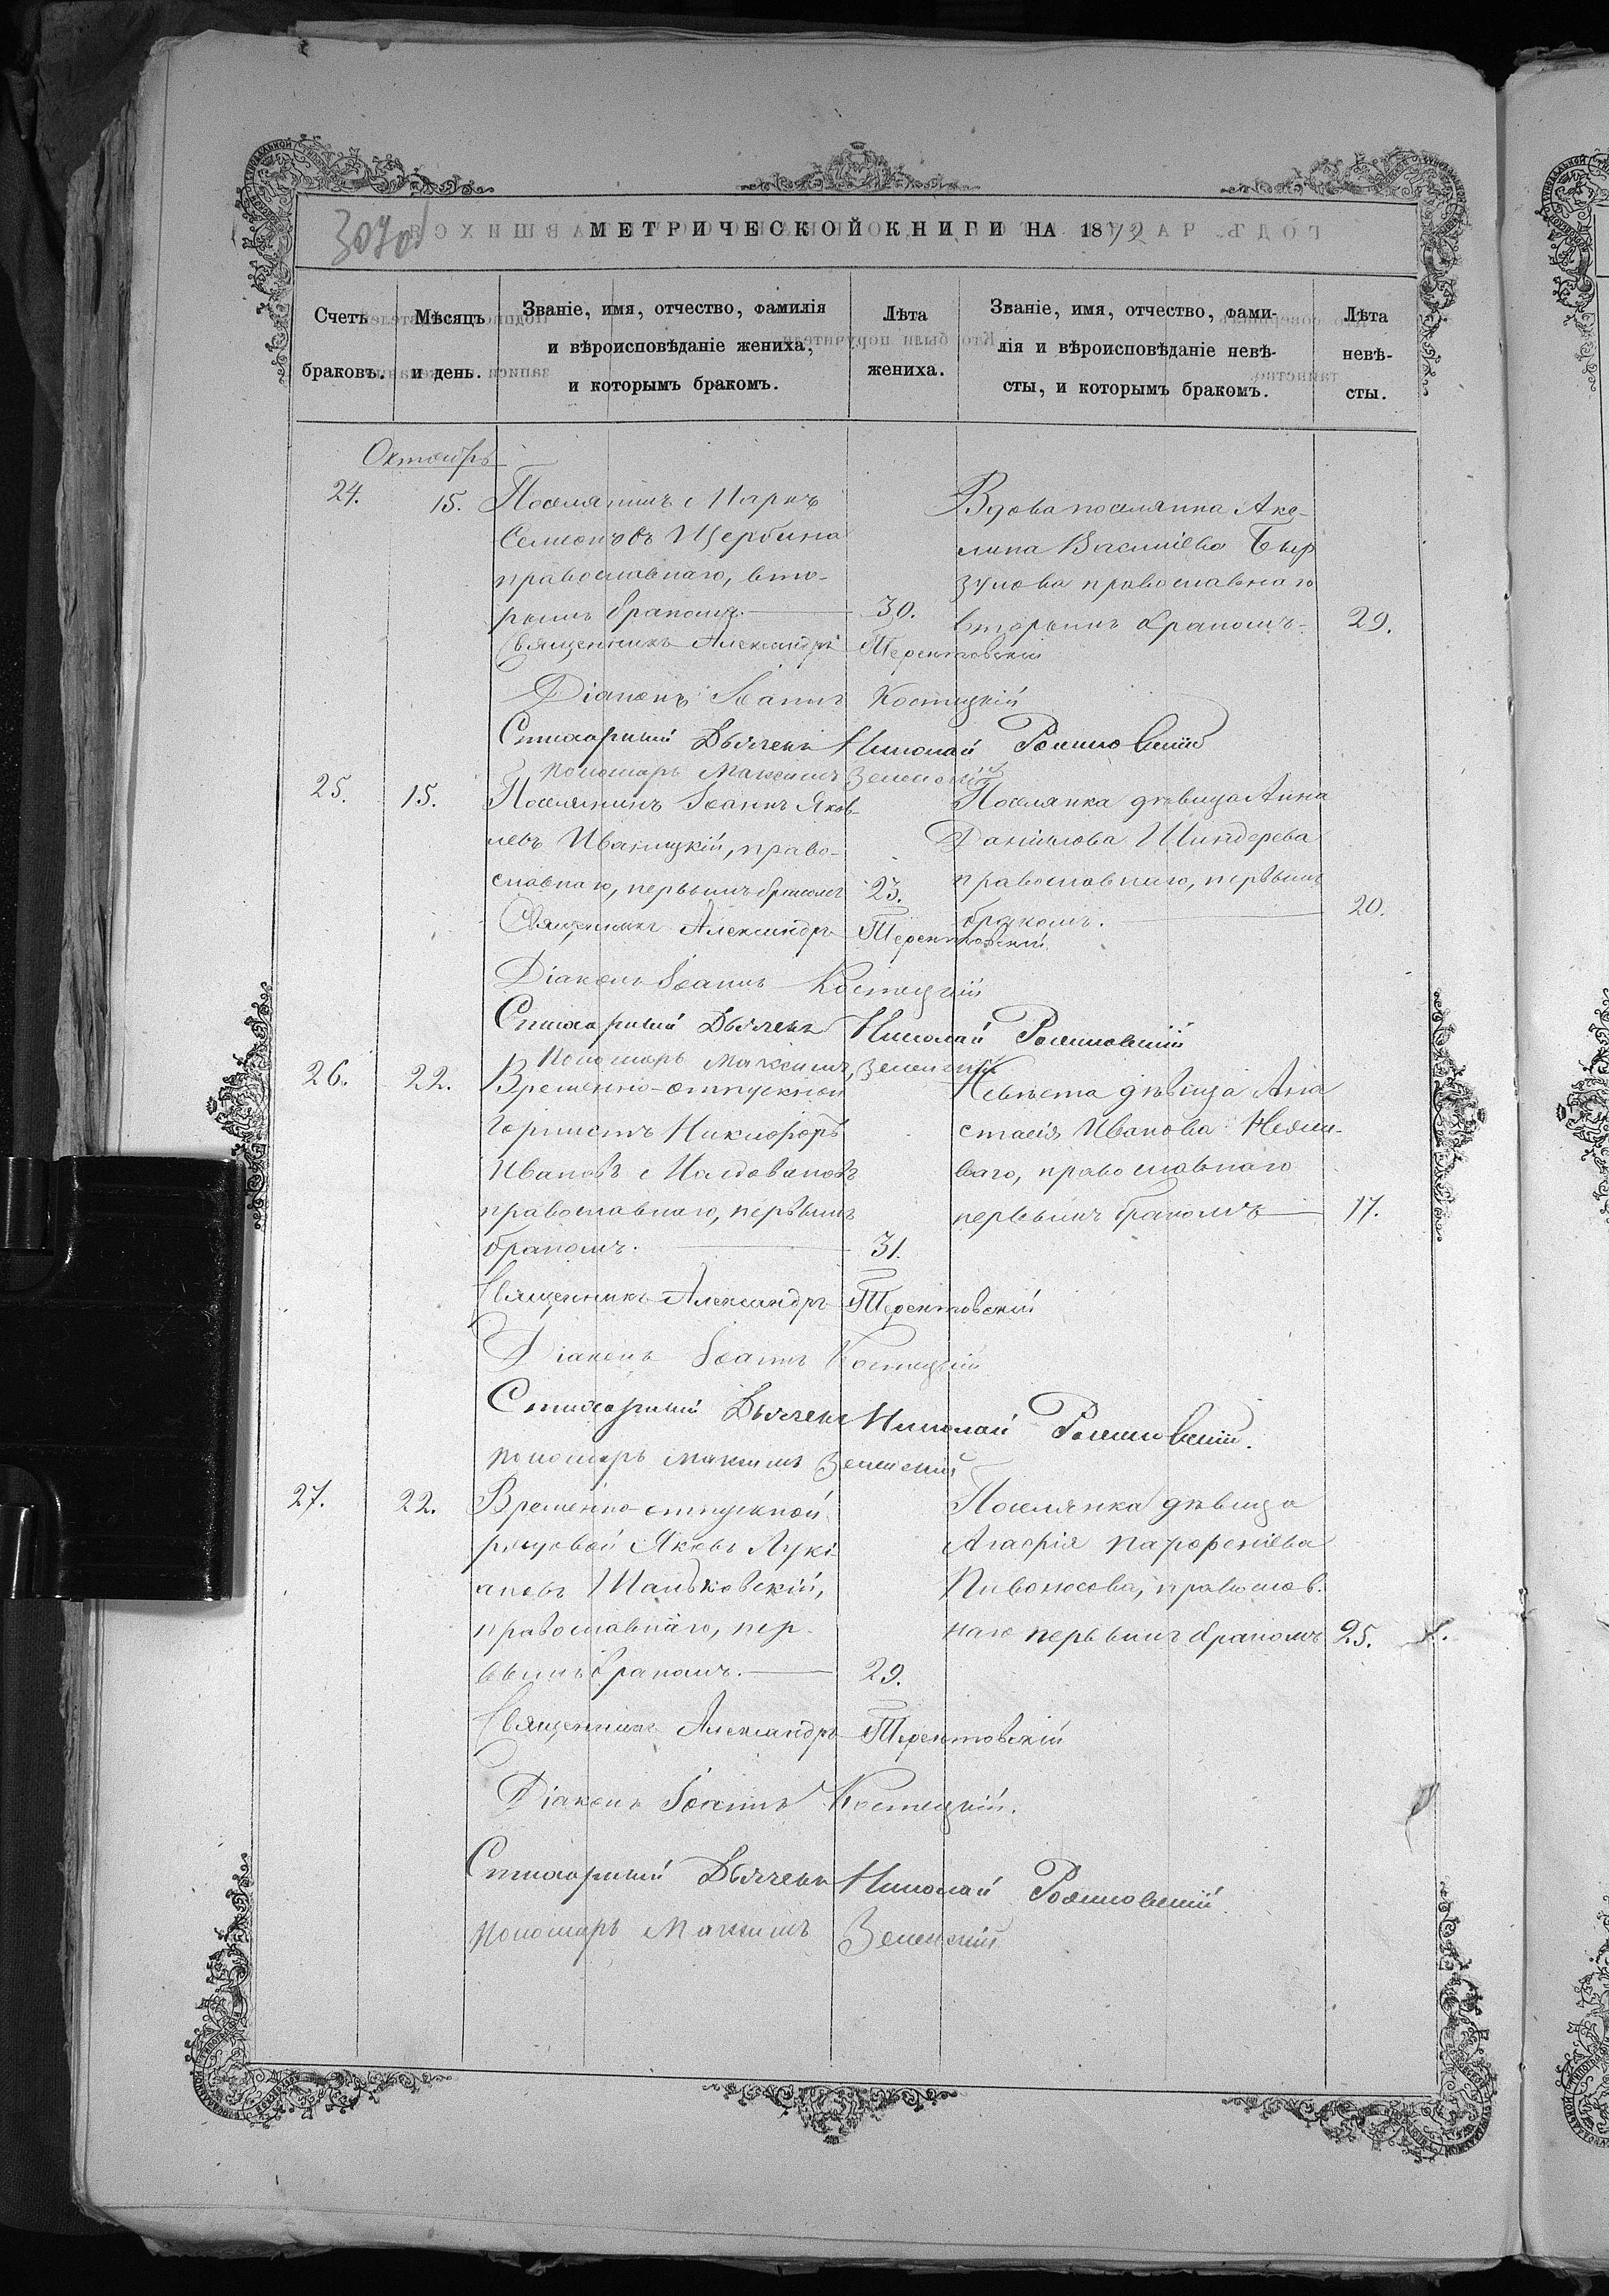 307об
МЕТРИЧЕСКОЙ КНИГИ НА 1872
Счетъ браковъ.
Мѣсяцъ и день.
Званіе, имя, отчество, фамилія
и вѣроисповѣданіе жениха,
и которымъ бракомъ.
Лѣта
жениха.
Званіе, имя, отчество, фами-
лія и вѣроисповѣданіе невѣ-
сты, и которымъ бракомъ.
Лѣта
невѣ-
сты.
Октябрь
24. 15.
Поселянинъ Маркъ
Семеновъ Щербина
православнаго, вто-
рымъ бракомъ. 30.
Вдова поселянка Аке-
лина Василіева Быр
зулова православнаго
вторымъ бракомъ 29.
Священникъ Александръ Терентовскій
Діаконъ Іоаннъ Костецкій
Стихарный Дьячекъ Николай
Пономарь Максимъ Зеленскій
25. 15.
Поселянинъ Іоаннъ Яков-
левъ Иваницкій, право-
славнаго, первымъ бракомъ 23.
Поселянка дѣвица Анна
Даніилова Шиндерева
православнаго, первымъ
бракомъ. 20.
Священникъ Александръ Терентовскій
Діаконъ Іоаннъ Костецкій
Стихарный Дьячекъ Николай
Пономарь Максимъ Зеленскій
26. 22.
Временно-отпускной
Горнистъ Никифоръ
Ивановъ Молдовановъ
православнаго, первымъ
бракомъ. 31.
Невѣста дѣвица Ана
стасія Иванова
ваго, православнаго
первымъ бракомъ 17.
Священникъ Александръ Терентовскій
Діаконъ Іоаннъ Костецкій
Стихарный Дьячекъ Николай
Пономарь Максимъ Зеленскій
27. 22.
Временно-отпускной
рядовой Яковъ Лукі
ановъ Шаньковскій,
православнаго, пер-
вымъ бракомъ. 29.
Поселянка дѣвица
Агафія Парфеніева
Пивоносова, православ-
наго первымъ бракомъ 25.
Священникъ Александръ Терентовскій
Діаконъ Іоаннъ Костецкій.
Стихарный Дьячекъ Николай
Пономарь Максимъ Зеленскій